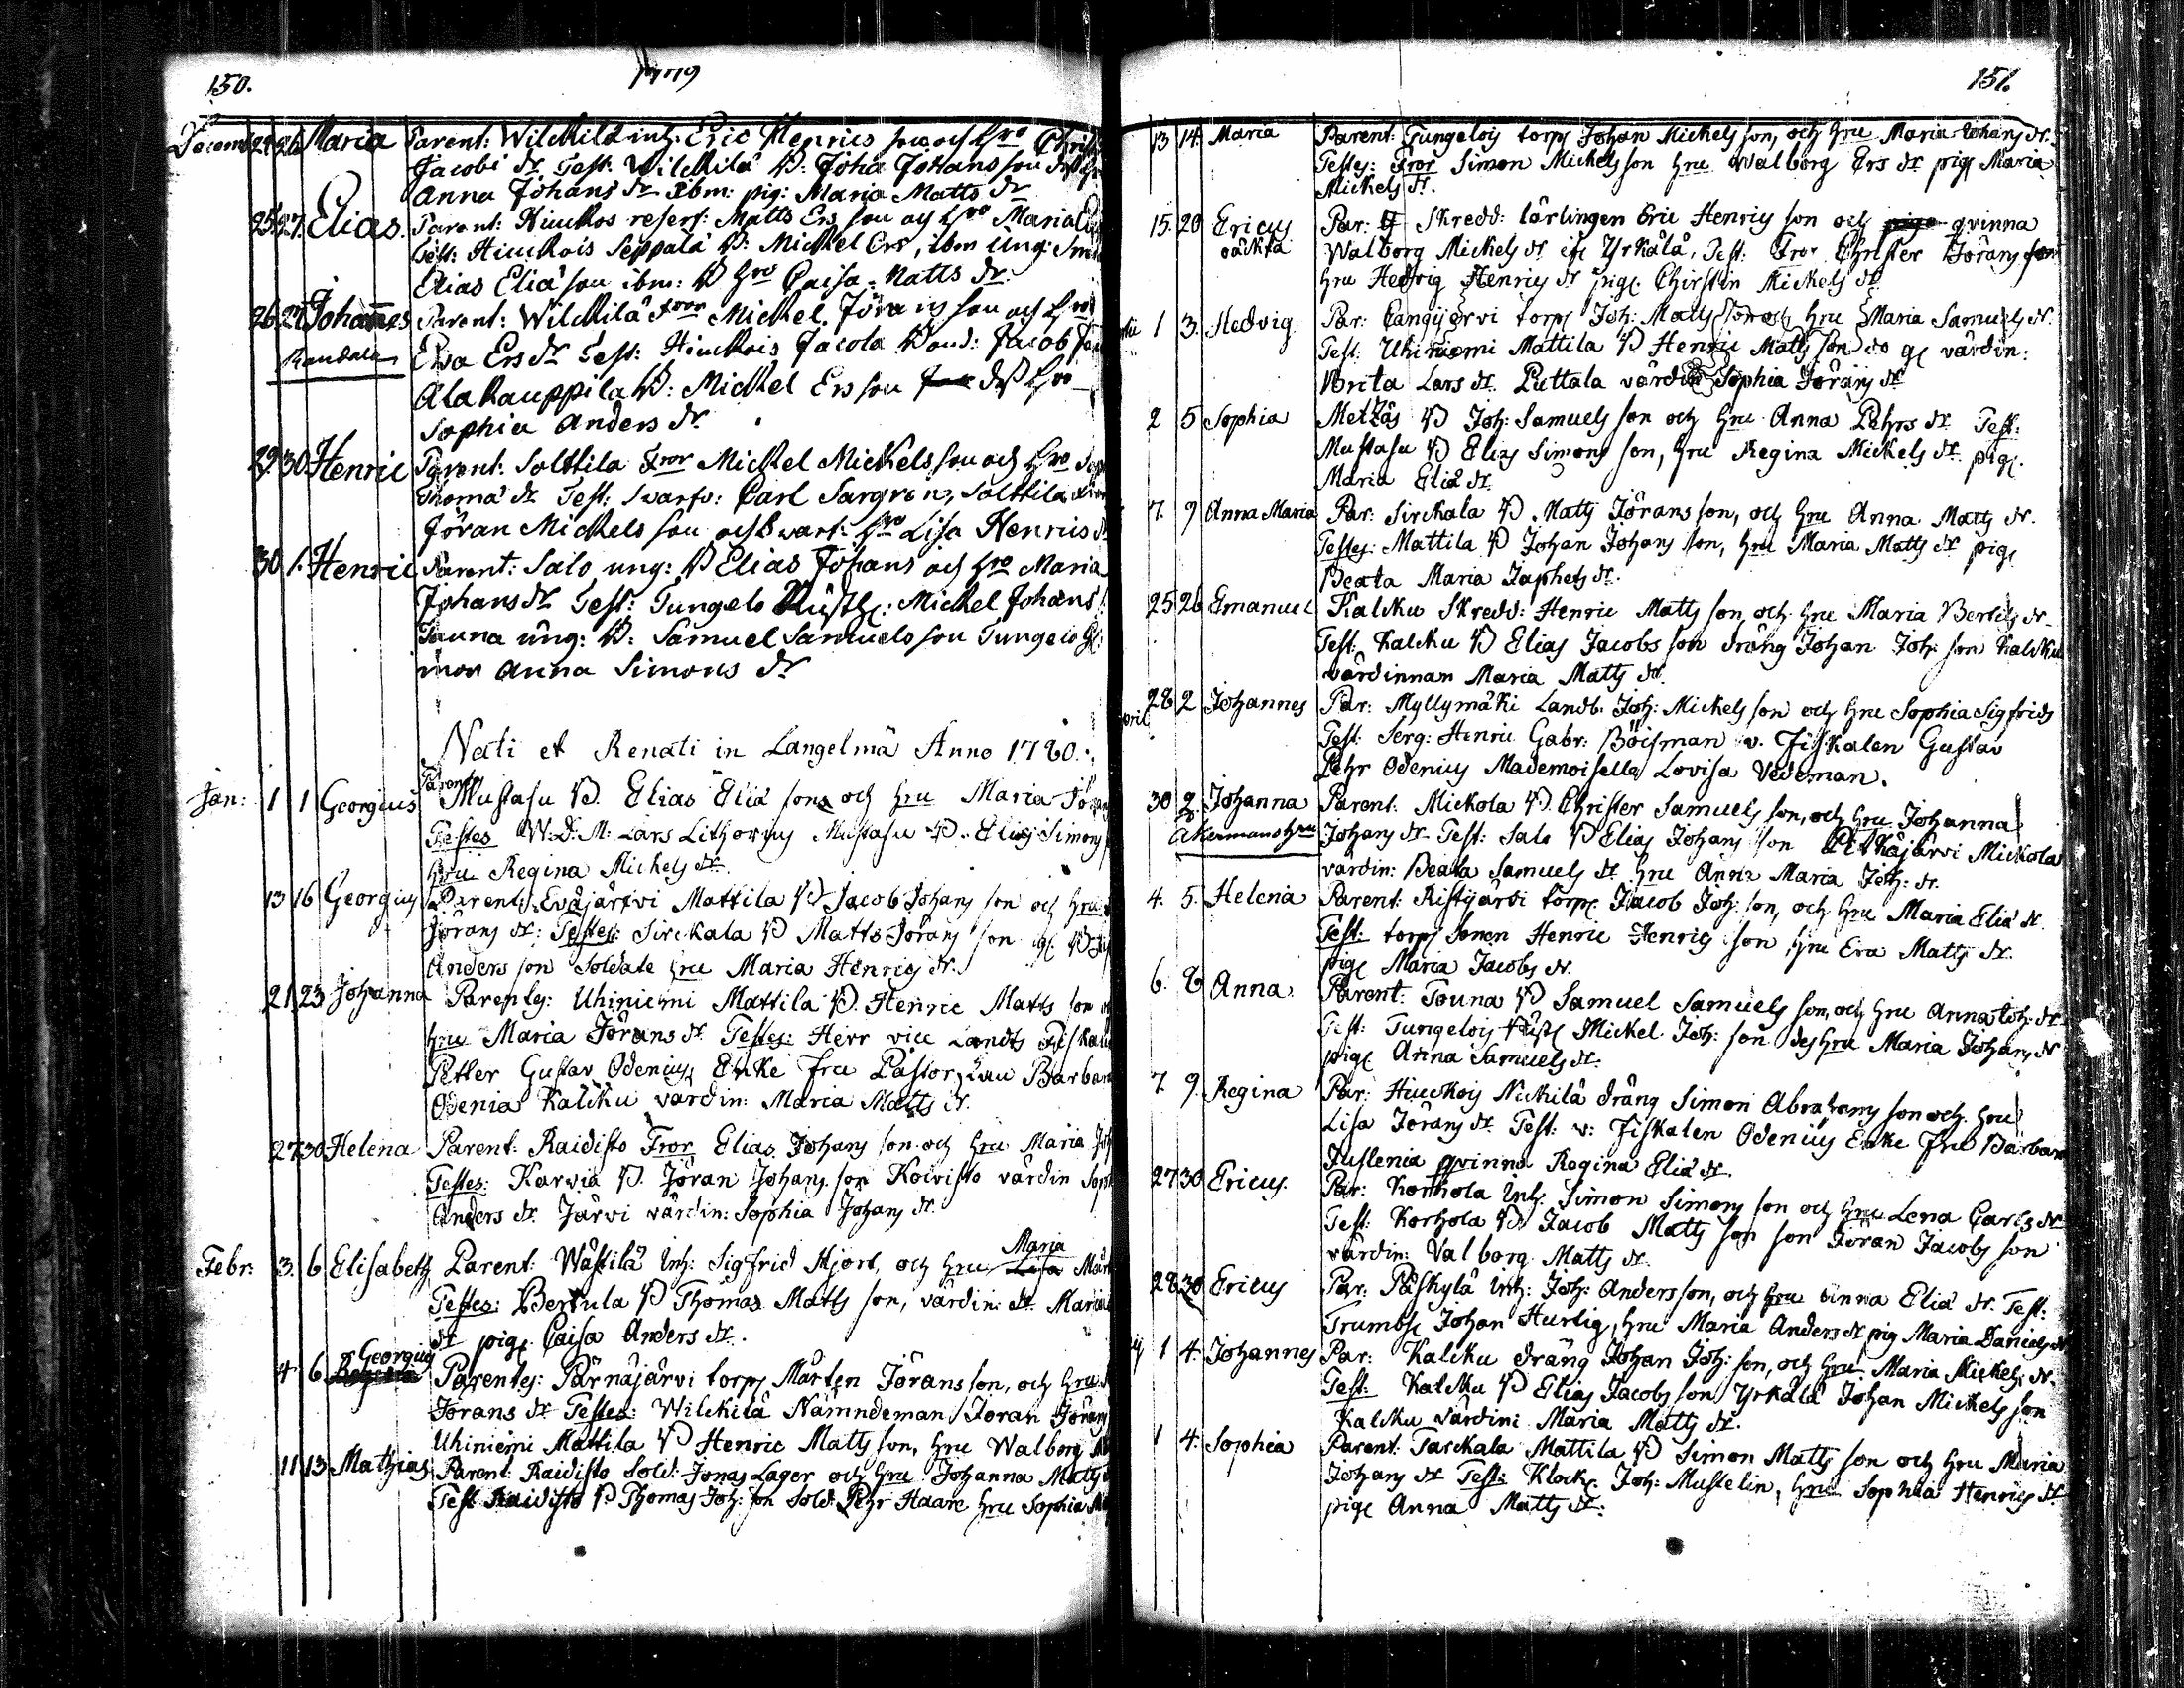 150.
1779
Decemb 24 26 Maria Parent: Wilckilä inh: Eric Henrics son och hro Christ
Jacobi dr Test: Wilckilä B: Joha Johans son dess hro
Anna Johans dr ibm: pig: Maria Matts dr
25 27. Elias. Parent: Hiuckois reserf: Matts Ers son och hro Maria
Test: Hiuckois Seppälä B: Mickel Ers, ibm ung:
Elias Eliä son ibm: B hro Caisa Matts dr
26 27 Johannes Parent: Wilckilä Fror Mickel Jörans son och hro
Kaudala Ewa Ers dr Test: Hiuckois Jacola Jacob
Alakauppila B: Mickel Ers son dess hro
Sophia Anders dr.
29 30 Henric Parent: Solttila Fror Mickel Mickels son och hro
Thoma dr Test: Swarfv: Carl Sargren, Solttila
Jöran Mickels son och Swarf: hro Lisa Henrics dr
30 1. Henric Parent: Salo ung: B Elias Johans och hro Maria
Johans dr Test: Tungelo Rusth: Mickel Johans
Tauna ung: B: Samuel Samuels son Tungelo
mor Anna Simons dr
Nati et Renati in Langelmä Anno 1780.
Jan: 1 1 Georgius Parent: Mustasu B. Elias Eliä son och hru Maria
Testes W:D:M: Lars Lithovius Mustasu B. Elias Simons
hru Regina Mickels dr.
13 16 Georgius Parent: Eväjärvi Mattila B Jacob Johans son och hru
Jörans dr: Testes: Sirckala B Matts Jörans son
Anders son Soldate hru Maria Henrics dr.
21 23 Johanna Parentes: Uhiniemi Mattila B. Henric Matts son
hru Maria Jörans dr. Testes: Herr vice Landts Fiskalen
Petter Gustav Odenius, Enke fru Pastorskan Barbara
Odenia Kalcku vardin: Maria Matts dr.
27 30 Helena Parent: Raidisto Fror Elias Johans son och hru Maria
Testes: Karvia B. Jöran Johans son Koivisto värdin
Anders dr. Järvi värdin: Sophia Johans dr.
Febr: 3. 6 Elisabeth Parent: Wästilä Inh: Sigfrid Hjort, och hru Lisa Maria
Testes: Bertula B Thomas Matts son, värdin: dr. Maria
dr pig. Caisa Anders dr.
4 6 Georgius Parentes: Pärnäjärvi torp Mårten Jörans son, och hru
Jörans dr Testes: Wilckilä Nämndeman Jöran Jörans
Uhiniemi Mattila B Henric Matts son, hru Walborg
11 13 Mathias Parent: Raidisto Sold: Jonas Lager och hru Johanna Matts
Test Raidisto B Thomas Joh: son Sold: Pehr Haare hru Sophia
151.
13 14 Maria Parent: Tungelois torp Johan Mickels son, och hru Maria Johans dr.
Testes: Fror Simon Mickels son hru Walborg Ers dr pig Maria
Mickels dr.
15. 20 Ericus Par: Skredd: lärlingen Eric Henrics son och pigo qvinna
oäckta Walborg Mickels dr Yrkälä, Test: Fror Christer Jörans son
hru Hedvig Henrics dr pig. Christin Mickels dr.
1 3. Hedvig Par: Cangijervi torp Joh: Matts son och hru Maria Samuels dr.
Test: Uhiniemi Mattila B Henric Matts son do gl värdin:
Brita Lars dr. Puttala värdin Sophia Jörans dr
2 5 Sophia Metzäs B Joh: Samuels son och hru Anna Pehrs dr Test:
Mustasu B Elias Simons son, hru Regina Mickels dr. pig.
Maria Eliä dr.
7. 9 Anna Maria Par: Sirckala B Matts Jörans son, och hru Anna Matts dr.
Testes: Mattila B Johan Johans son, hru Maria Matts dr pig
Beata Maria Japhets dr.
25 26 Emanuel Kalcku Skredd: Henric Matts son, och hru Maria Bertils dr.
Test: Kalcku B Elias Jacobs son dräng Johan Joh: son Kalcku
värdinnan Maria Matts dr.
April 28 2 Johannes Par: Myllymäki Landb: Joh: Mickels son och hru Sophia Sigfrids
Test: Serg: Henric Gabr: Böisman v. Fiskalen Gustav
Pehr Odenius Mademoiselle Lovisa Wideman.
30 2. Johanna Parent: Mickola B. Christer Samuels son, och hru Johanna
Akermans hru Johans dr. Test: Salo B Elias Johans son Pitkäjärvi Mickola
värdin: Beata Samuels dr hru Anna Maria Joh: dr.
4. 5. Helena Parent: Ristijärvi torp Jacob Joh: son, och hru Maria Eliä dr
Test: torp sonen Henric Henrics son hru Eva Matts dr.
pig Maria Jacobs dr.
6. 8 Anna Parent: Touna B Samuel Samuels son, och hru Anna Joh: dr
Test: Tungelois Rust Mickel Joh: son des hru Maria Johans dr
pig Anna Samuels dr.
7. 9 Regina Par: Hiuckois Nickilä dräng Simon Abrahams son och hru
Lisa Jörans dr. Test: v: Fiskalen Odenius Enke fru Barbara
Juslenia qvinna Regina Eliä dr.
27 30 Ericus. Par: Korhola Inh. Simon Simons son och hru Lena Carls dr
Test: Korhola B Jacob Matts son son Jöran Jacobs son
värdin: Valborg Matts dr.
28 30 Ericus Par: Päskylä Inh: Joh: Anders son, och hru Anna Eliä dr. Test:
Trumbsl Johan Hurtig, hru Maria Anders dr pig Maria Daniels dr
1 4. Johannes Par: Kalcku dräng Johan Joh: son, och hru Maria Mickels dr.
Test: Kalcku B Elias Jacobs son Yrkälä Johan Mickels son
Kalcku värdin: Maria Matts dr.
1 4. Sophia Parent: Tarckala Mattila B Simon Matts son och hru Maria
Johans dr Test: Klock: Joh: Mustelin, hru Sophia Henrics dr
pig Anna Matts dr.